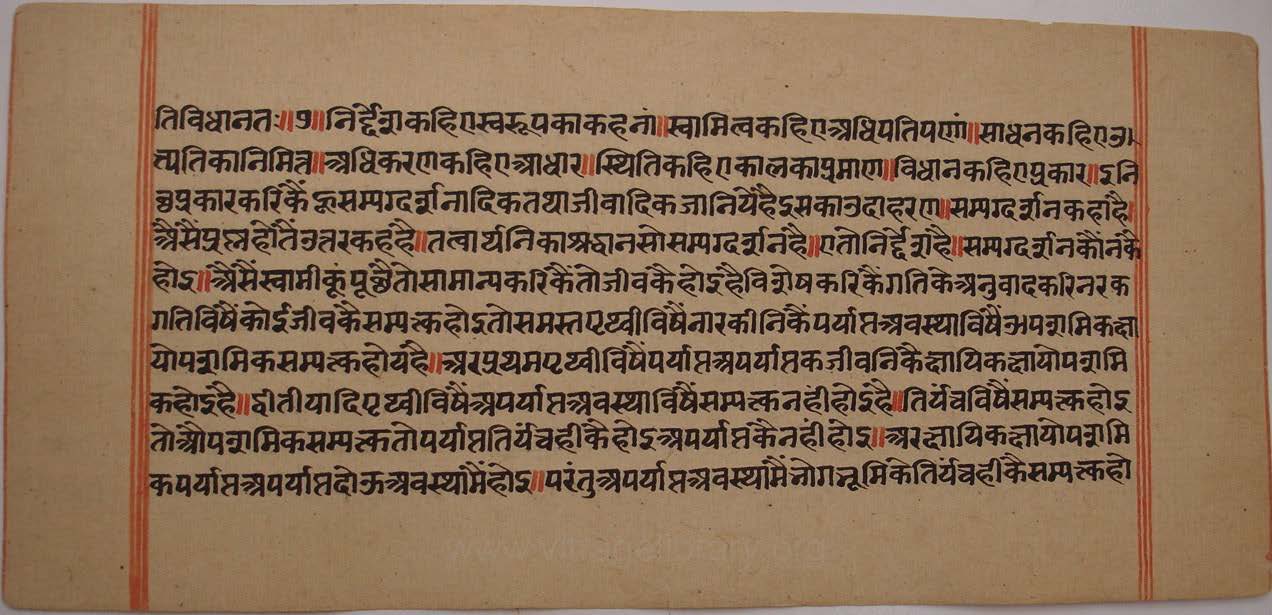 तिविधानतः॥७॥निर्द्देशकहिएस्वरूपकाकहनां॥स्वामित्वकहिएअधिपतिपणां॥साधनकहिएउ
त्पतिकानिमित्त॥अधिकरणकहिएआधार॥स्थितिकहिएकालकाप्रमाण॥विधानकहिएप्रकार॥इनि
छप्रकारकरिकैंहूसम्यग्दर्शनादिकतथाजीवादिकजानियेंहैइसकाउदाहरण॥सम्यग्दर्शनकहाहै
अैसैंप्रश्नहोतैंउतरकहैहै॥तत्वार्थनिकाश्रद्धानसोसम्यग्दर्शनहै॥एतोनिर्द्देशहै॥सम्यग्दर्शनकौंनकै
होइ॥अैसैंस्वामीकूंपूछैतोसामान्यकरिकैंतोजीवकैहोइहैविशेषकरिकैंगतिकेअनुवादकरिनरक
गतिविषैंकोईजीवकैसम्यक्तहोइतोसमस्तपृथ्वीविषैंनारकीनिकैंपर्याप्तअवस्थाविषैंउपशमिकक्षा
योपशमिकसम्यक्तहोयहै॥अरप्रथमपृथ्वीविषैंपर्याप्तअपर्याप्तकजीवनिकैक्षायिकक्षायोपशमि
कहोइहै॥द्वितीयादिपृथ्वीविषैंअपर्याप्तअवस्थाविषैंसम्यक्तनहींहोइहै॥तिर्यंचविषैंसम्यक्तहोइ
तोऔपशमिकसम्यक्ततोपर्याप्ततिर्यंचहीकैहोइअपर्याप्तकैनहींहोइ॥अरक्षायिकक्षायोपशमि
कपर्याप्तअपर्याप्तदोऊअवस्थामैंहोइ॥परंतुअपर्याप्तअवस्थामैंभोगभूमिकेतिर्यंचहीकैसम्यक्तहो
www.vihanglibrary.org